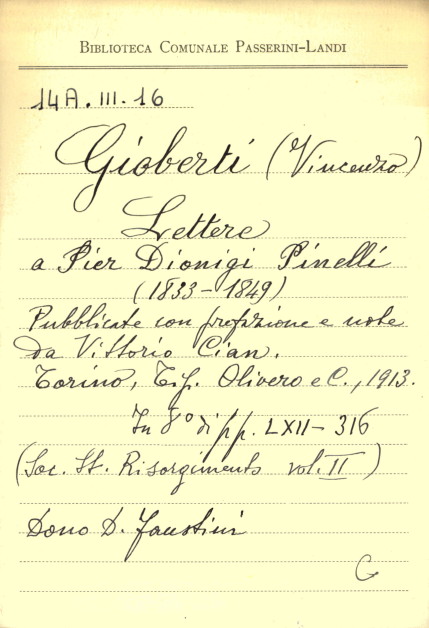 BIBLIOTECA COMUNALE PASSERINI-LANDI
14A. III. 16
Gioberti (Vincenzo)
Lettere
a Pier Dionigi Pinelli
(1833-1849)
Pubblicate con prefazione e note
da Vittorio Cian.
Torino, Tip. Olivero e C., 1913.
In 8° di pp. LXII-316
(Soc. St. Risorgimento vol. II)
Dono D. Faustini
G